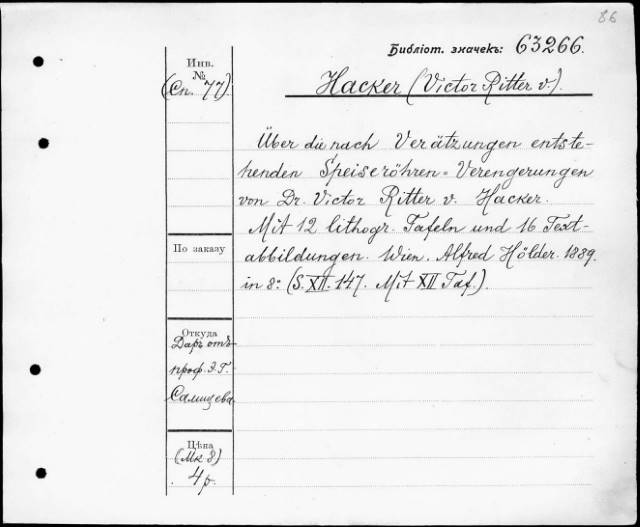 86
Библіот. значекъ: 63266.
Инв.
№
(Сп. 77).
Hacker (Victor Ritter v.).
Über die nach Verätzungen entste-
henden Speiseröhren-Verengerungen
von Dr. Victor Ritter v. Hacker.
Mit 12 lithogr. Tafeln und 16 Text-
abbildungen. Wien. Alfred Hölder. 1889.
in 8º (S. XII. 147. Mit XII Taf.).
По заказу
Откуда
Даръ отъ
проф. Э. Г.
Салищева.
Цѣна
(Mk 8)
4 р.